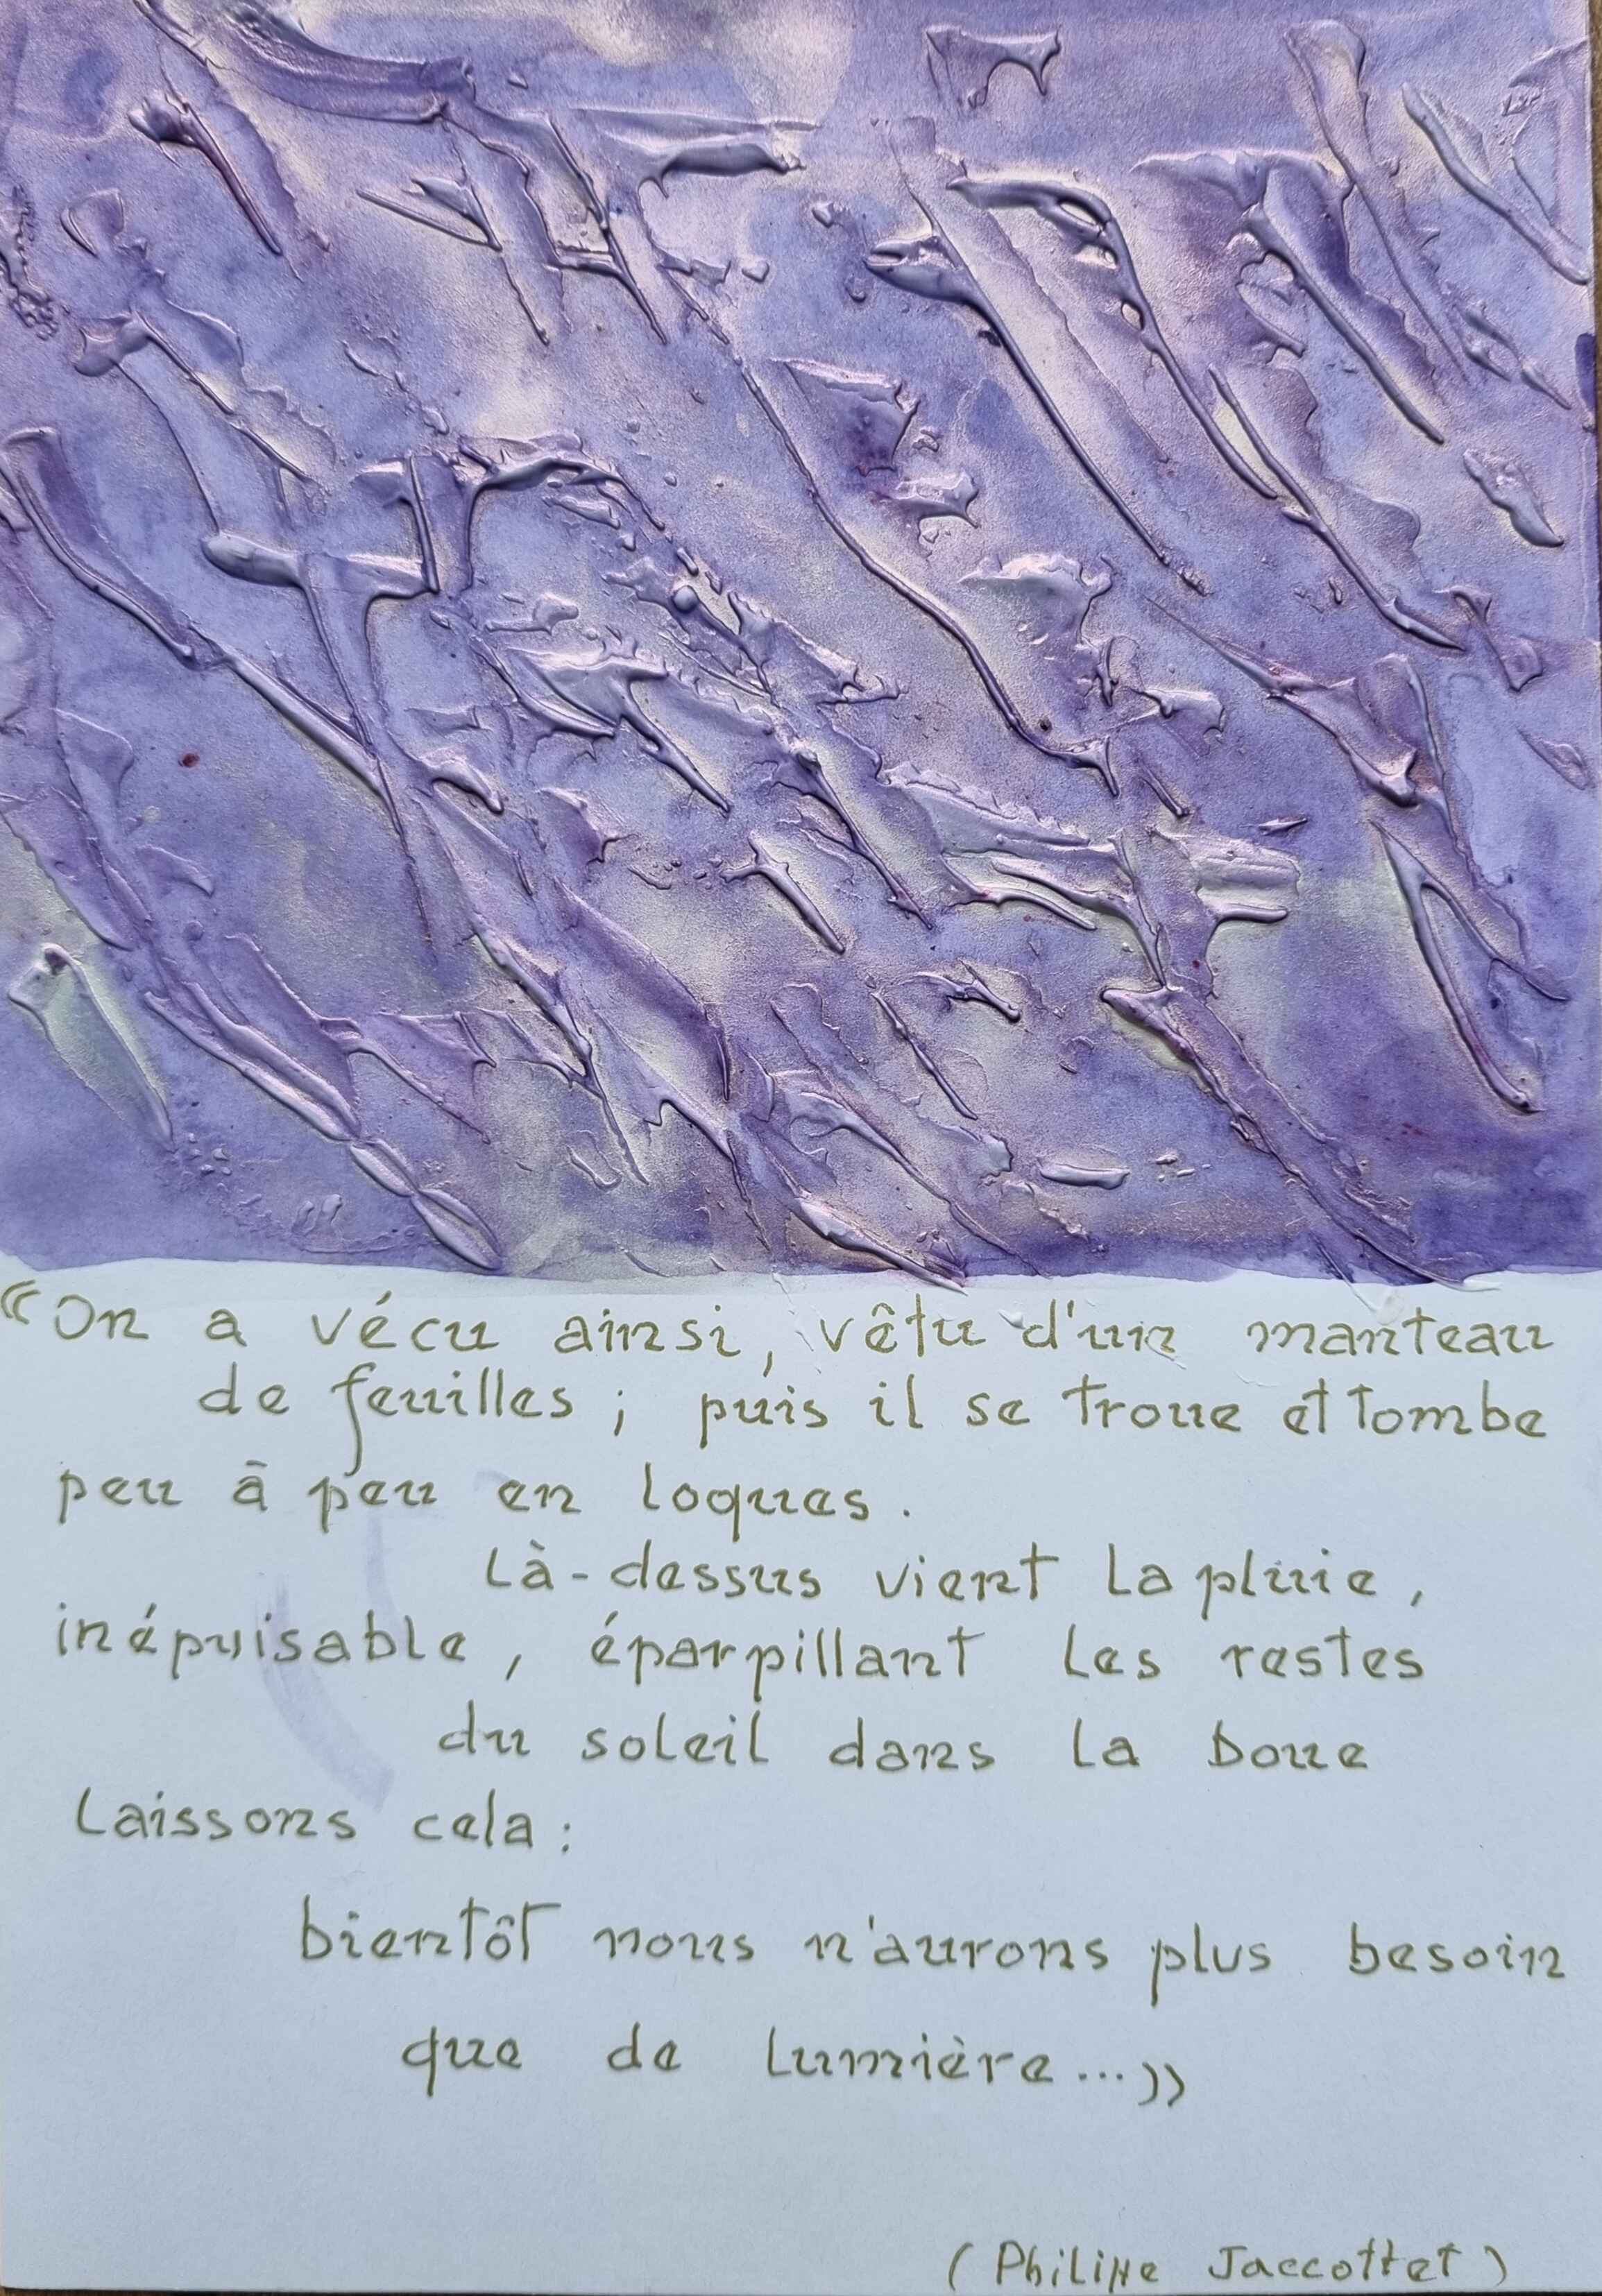 «On a vécu ainsi, vêtu d'un manteau
de feuilles ; puis il se troue et tombe
peu à peu en loques.
Là-dessus vient la pluie,
inépuisable, éparpillant les restes
du soleil dans la boue
Laissons cela :
bientôt nous n'aurons plus besoin
que de lumière...»
(Philippe Jaccottet)